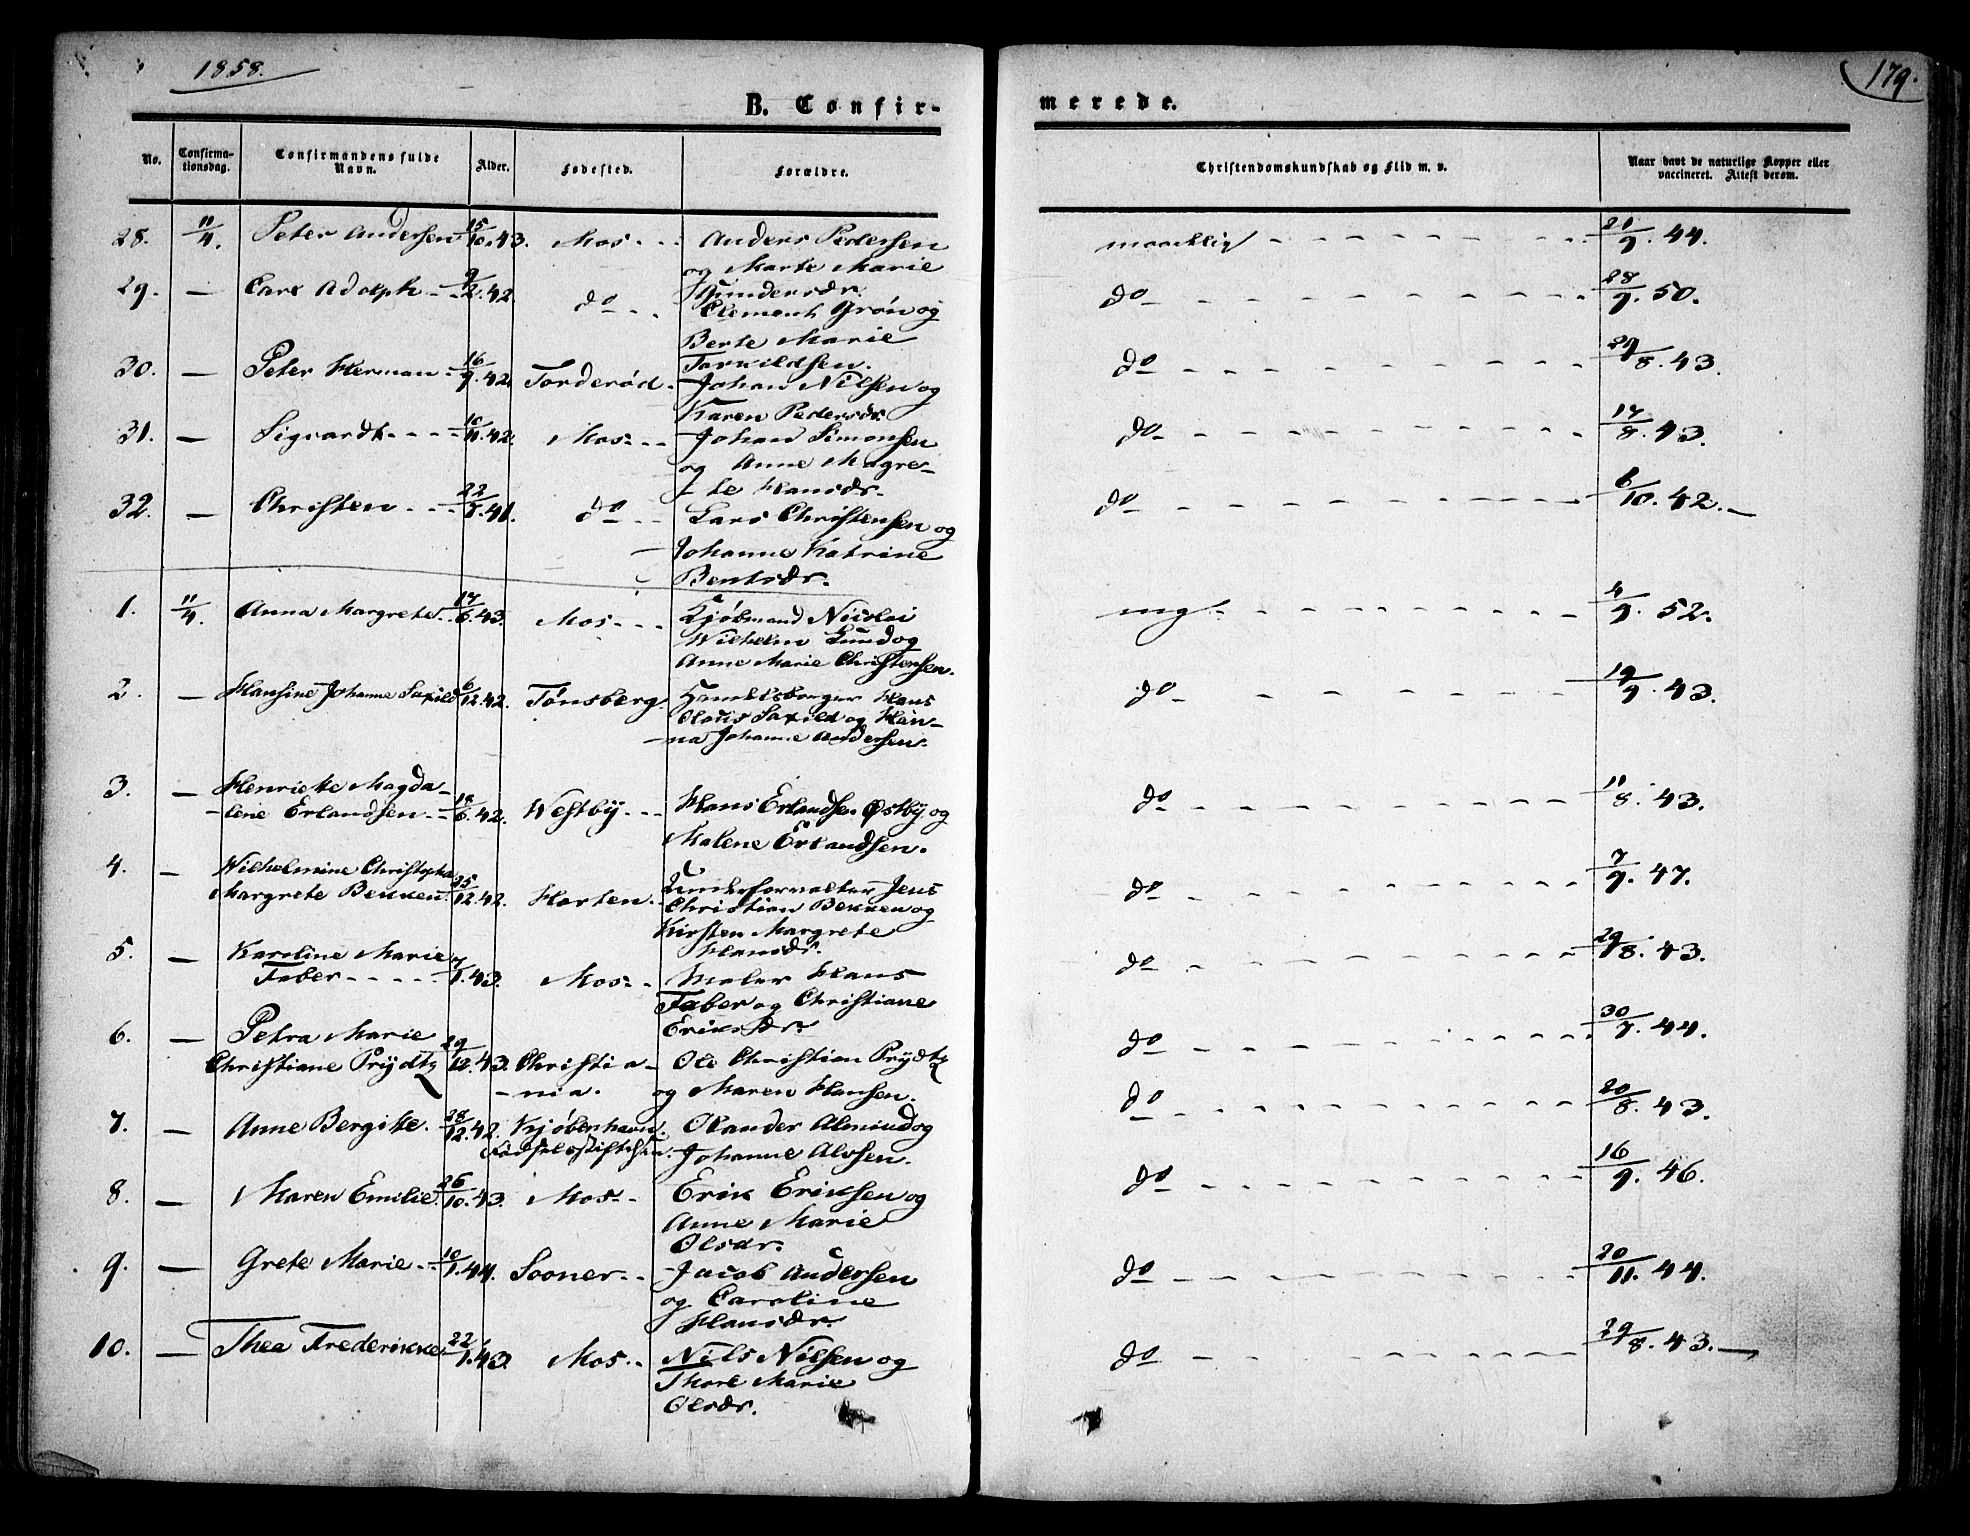 1858.
179.
B. Confir-
merede.
No.
Confirma-
tionsdag.
Confirmandens fulde
Navn.
Alder.
Fødested.
Forældre.
Christendomskundskab og Flid m. v.
Naar havt de naturlige Kopper eller
vaccineret. Attest derom.
28. 11/4. Peter Andersen 15/10.43. Mos Anders Pedersen
og Marte Marie
Gundersdr.
maadelig 21/9. 44.
29. — Carl Adolph 9/2.42. do Clement Grøn og
Berte Marie
Torkildsen.
do 28/9. 50.
30. — Peter Herman 16/9.42. Torderød Johan Nilsen og
Karen Pedersdr
do 29/8. 43.
31. — Sigvardt 10/11.42. Mos Johan Simonsen
og Anne Magre-
te Hansdr.
do 17/8. 43.
32. — Christen 22/8.41. do Lars Christensen og
Johanne Katrine
Bentsdr.
do 6/10. 42.
1. 11/4. Anna Margrete 17/6.43. Mos Kjøbmand Nicolai
Wilhelm Lund og
Anne Marie Christensen.
mg 4/9. 52.
2. — Hansine Johanne Saxild 6/12.42. Tønsberg. Hans
Claus Saxild og Han-
na Johanne Andersen.
do 19/9. 43.
3. — Henriette Magda-
lene Erlandsen 18/6.42. Westby Hans Erlandsen Østby og
Malene Erlandsen.
do 11/8. 43.
4. — Wilhelmine Christopha
Margrete Bekken 25/12.42. Horten Underforvalter Jens
Christian Bekken og
Kirsten Margrete
Hansdr.
do 7/9. 47.
5. — Karoline Marie
Faber 7/1.43. Mos Maler Hans
Faber og Christiane
Eriksdr.
do 29/8. 43.
6. — Petra Marie
Christiane Prydtz 29/12.43. Christia-
nia. Ole Christian Prydtz
og Maren Hansen.
do 30/7. 44.
7. — Anne Bergitte. 28/12.42. Kjøbenhavn. Olander Almind og
Fødselsstiftelsen. Johanne Alvsen.
do 20/8. 43.
8. — Maren Emilie. 26/10.43. Mos Erik Eriksen og
Anne Marie
Olsdr.
do 16/9. 46.
9. — Grete Marie 10/1.44. Sooner Jacob Andersen
og Caroline
Hansdr.
do 20/11. 44.
10. — Thea Frederikke 22/1.43. Mos Nils Nilsen og
Thore Marie
Olsdr.
do 29/8. 43.